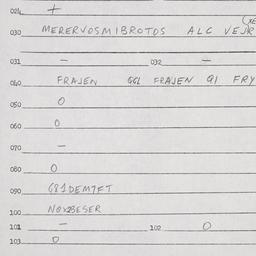 024 +
030 MERERVOSMIBROTOS ALC VEJR
031 — 032 —
040 FRAJEN GGL FRAJEN 91 FRY
050 0
060 0
070 —
080 0
090 G81DEM7FT
100 NOX2BESER
101 — 102 0
103 0